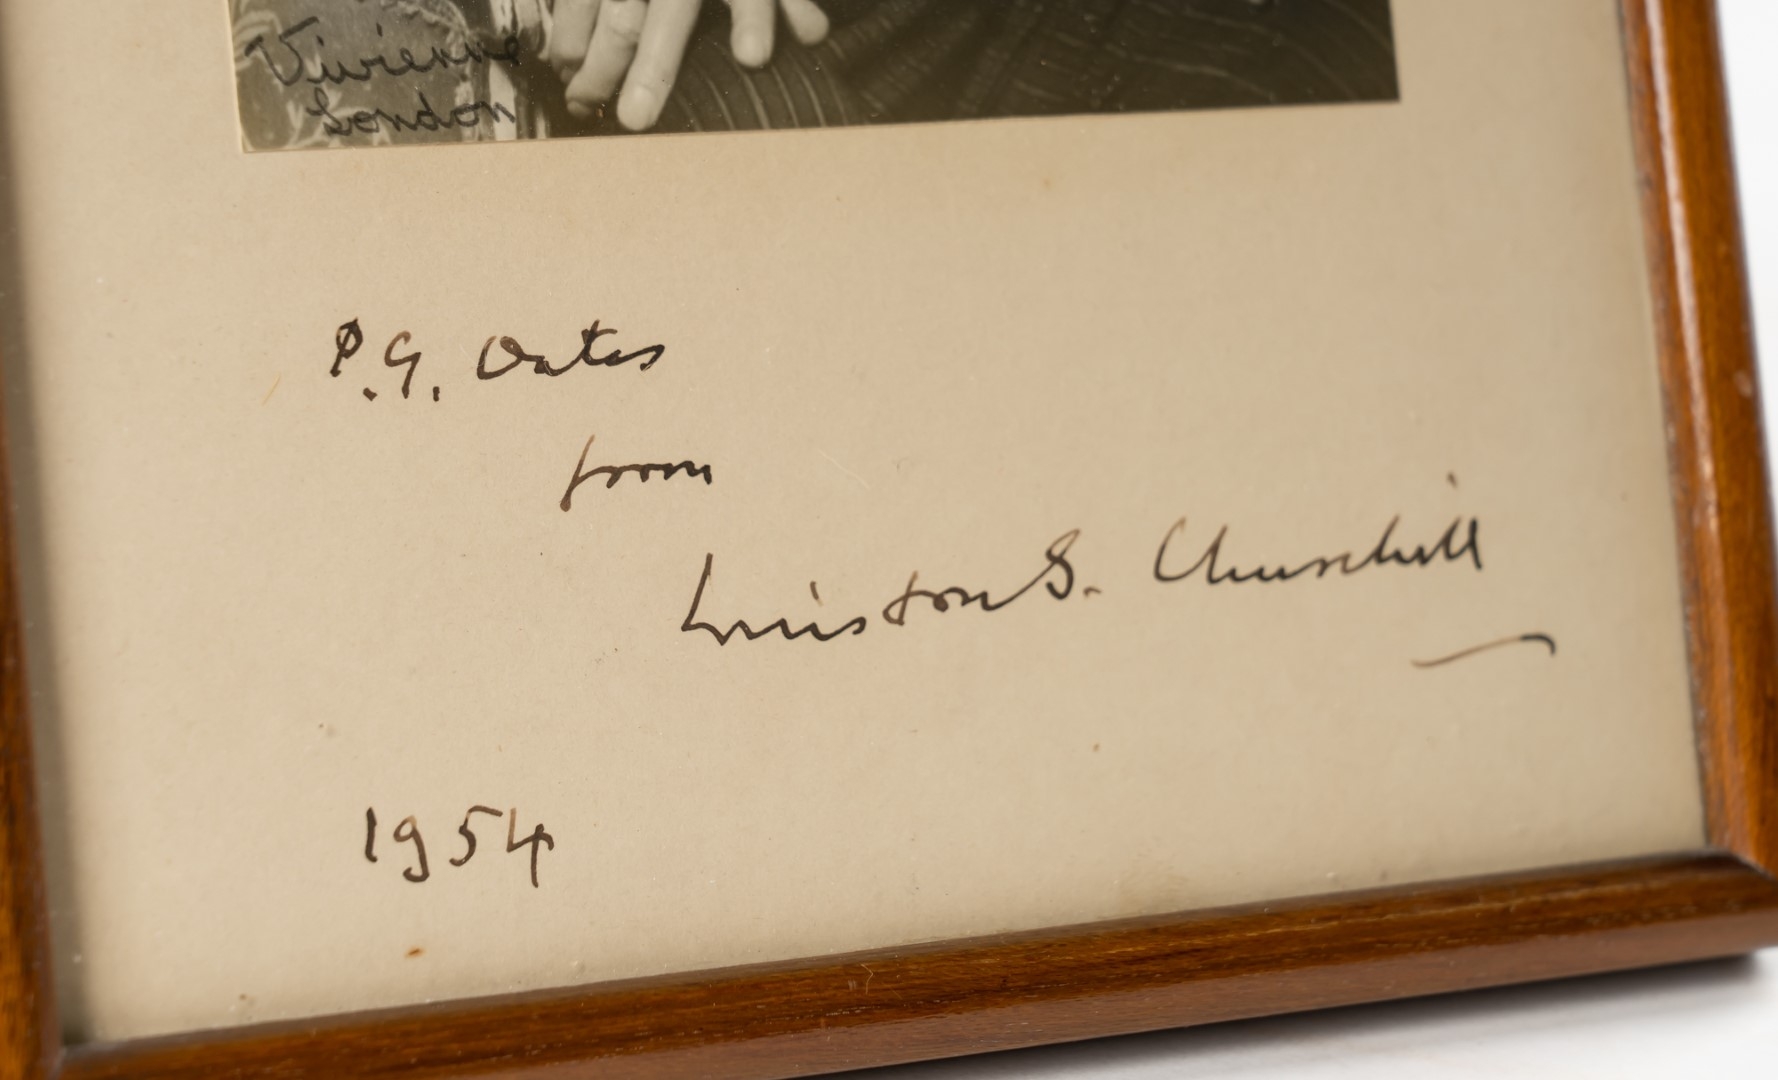 Vivienne
London
P.G. Oates
from
Winston S. Churchill
1954